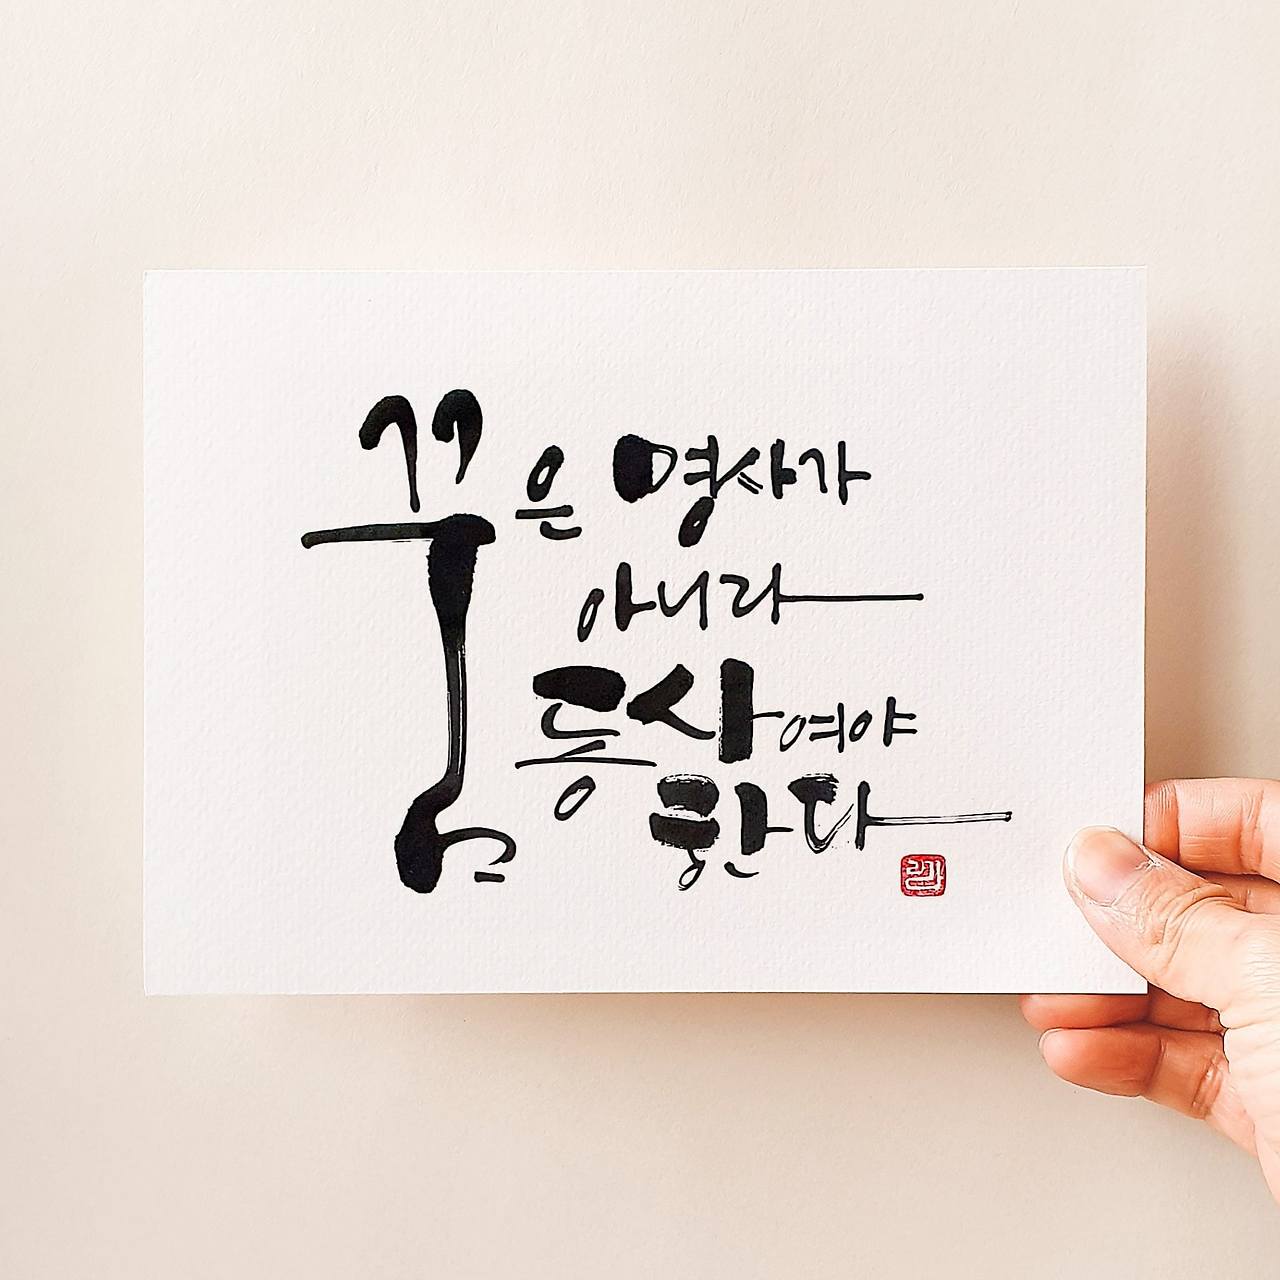 꿈은 명사가
아니라
동사여야
한다